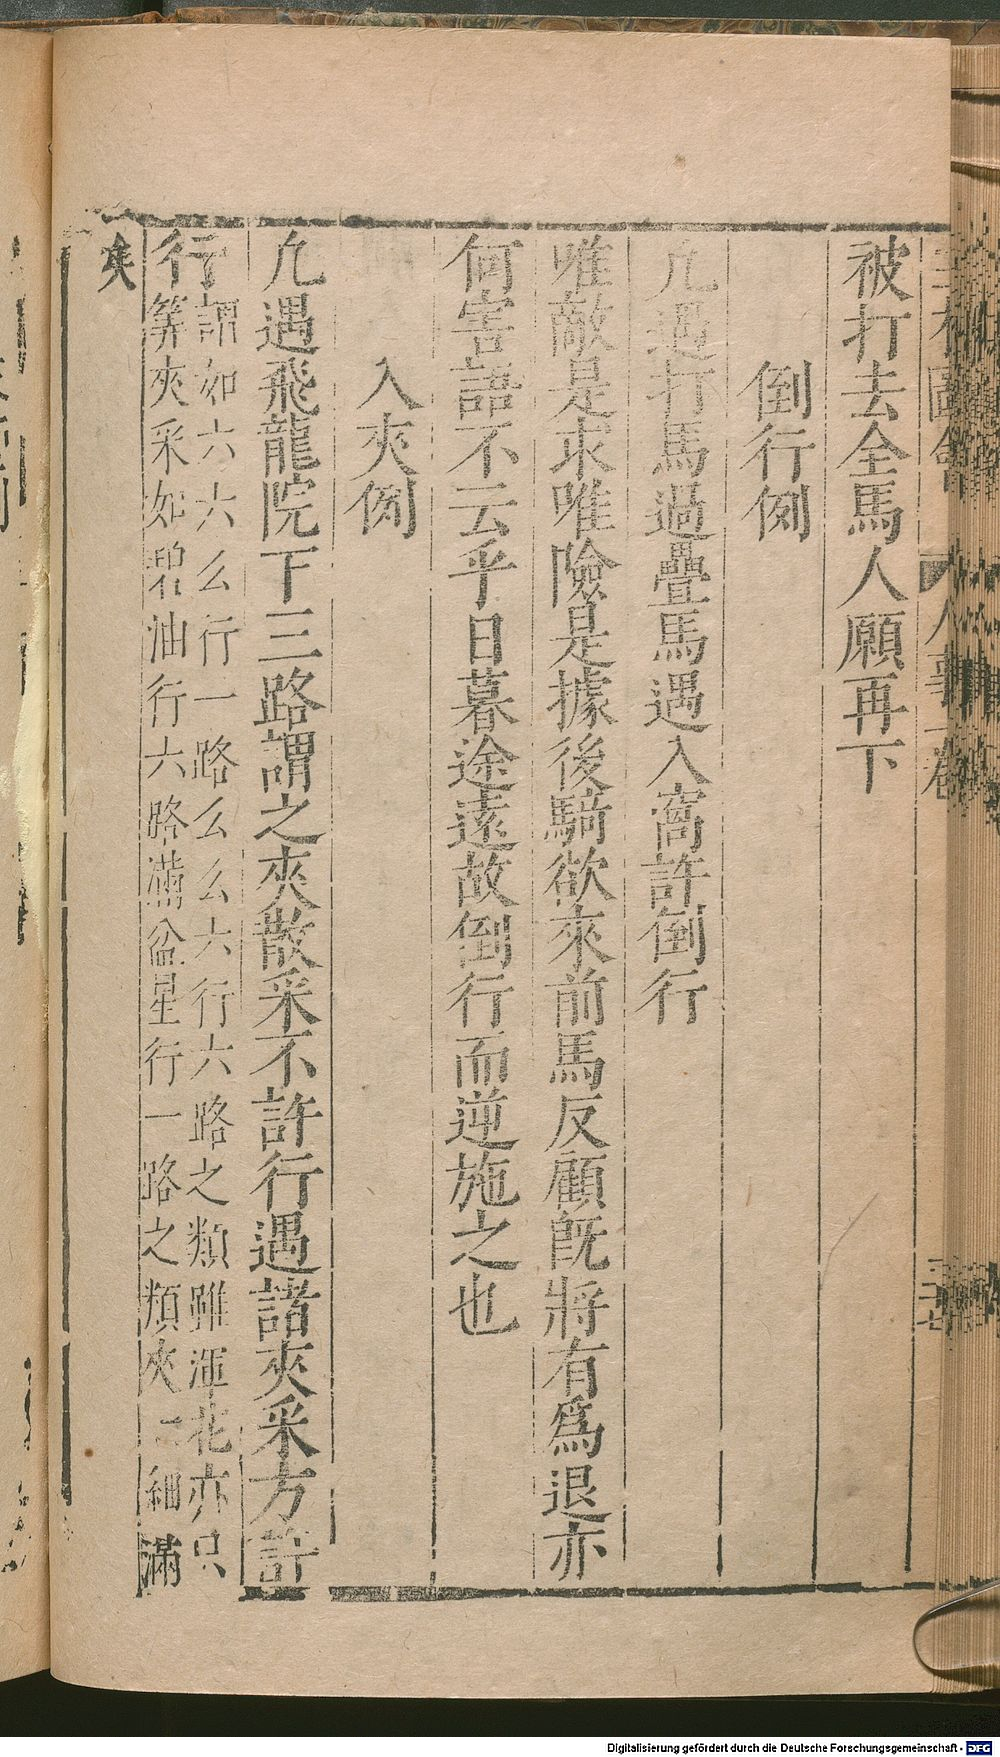 被打去全馬人願再下
倒行例
凢遇打馬過疊馬遇入窩許倒行
唯敵是求唯險是據後騎欲來前馬反顧旣將有爲退亦
何害語不云乎日暮途遠故倒行而逆施之也
入夾例
凢遇飛龍院下三路謂之夾散采不許行遇諸夾采方許
行
謂如六六么行一路么么六行六路之類雖渾花亦只
筭夾采如碧油行六路滿盆星行一路之類夾 細滿
矣
三才圖會
人事 卷
三十七
Digitalisierung gefördert durch die Deutsche Forschungsgemeinschaft - DFG